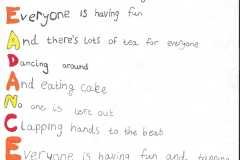 E Everyone is having fun
A And there's lots of tea for everyone
D Dancing around
A And eating cake
N No one is left out
C Clapping hands to the beat
E Everyone is having fun and tapping